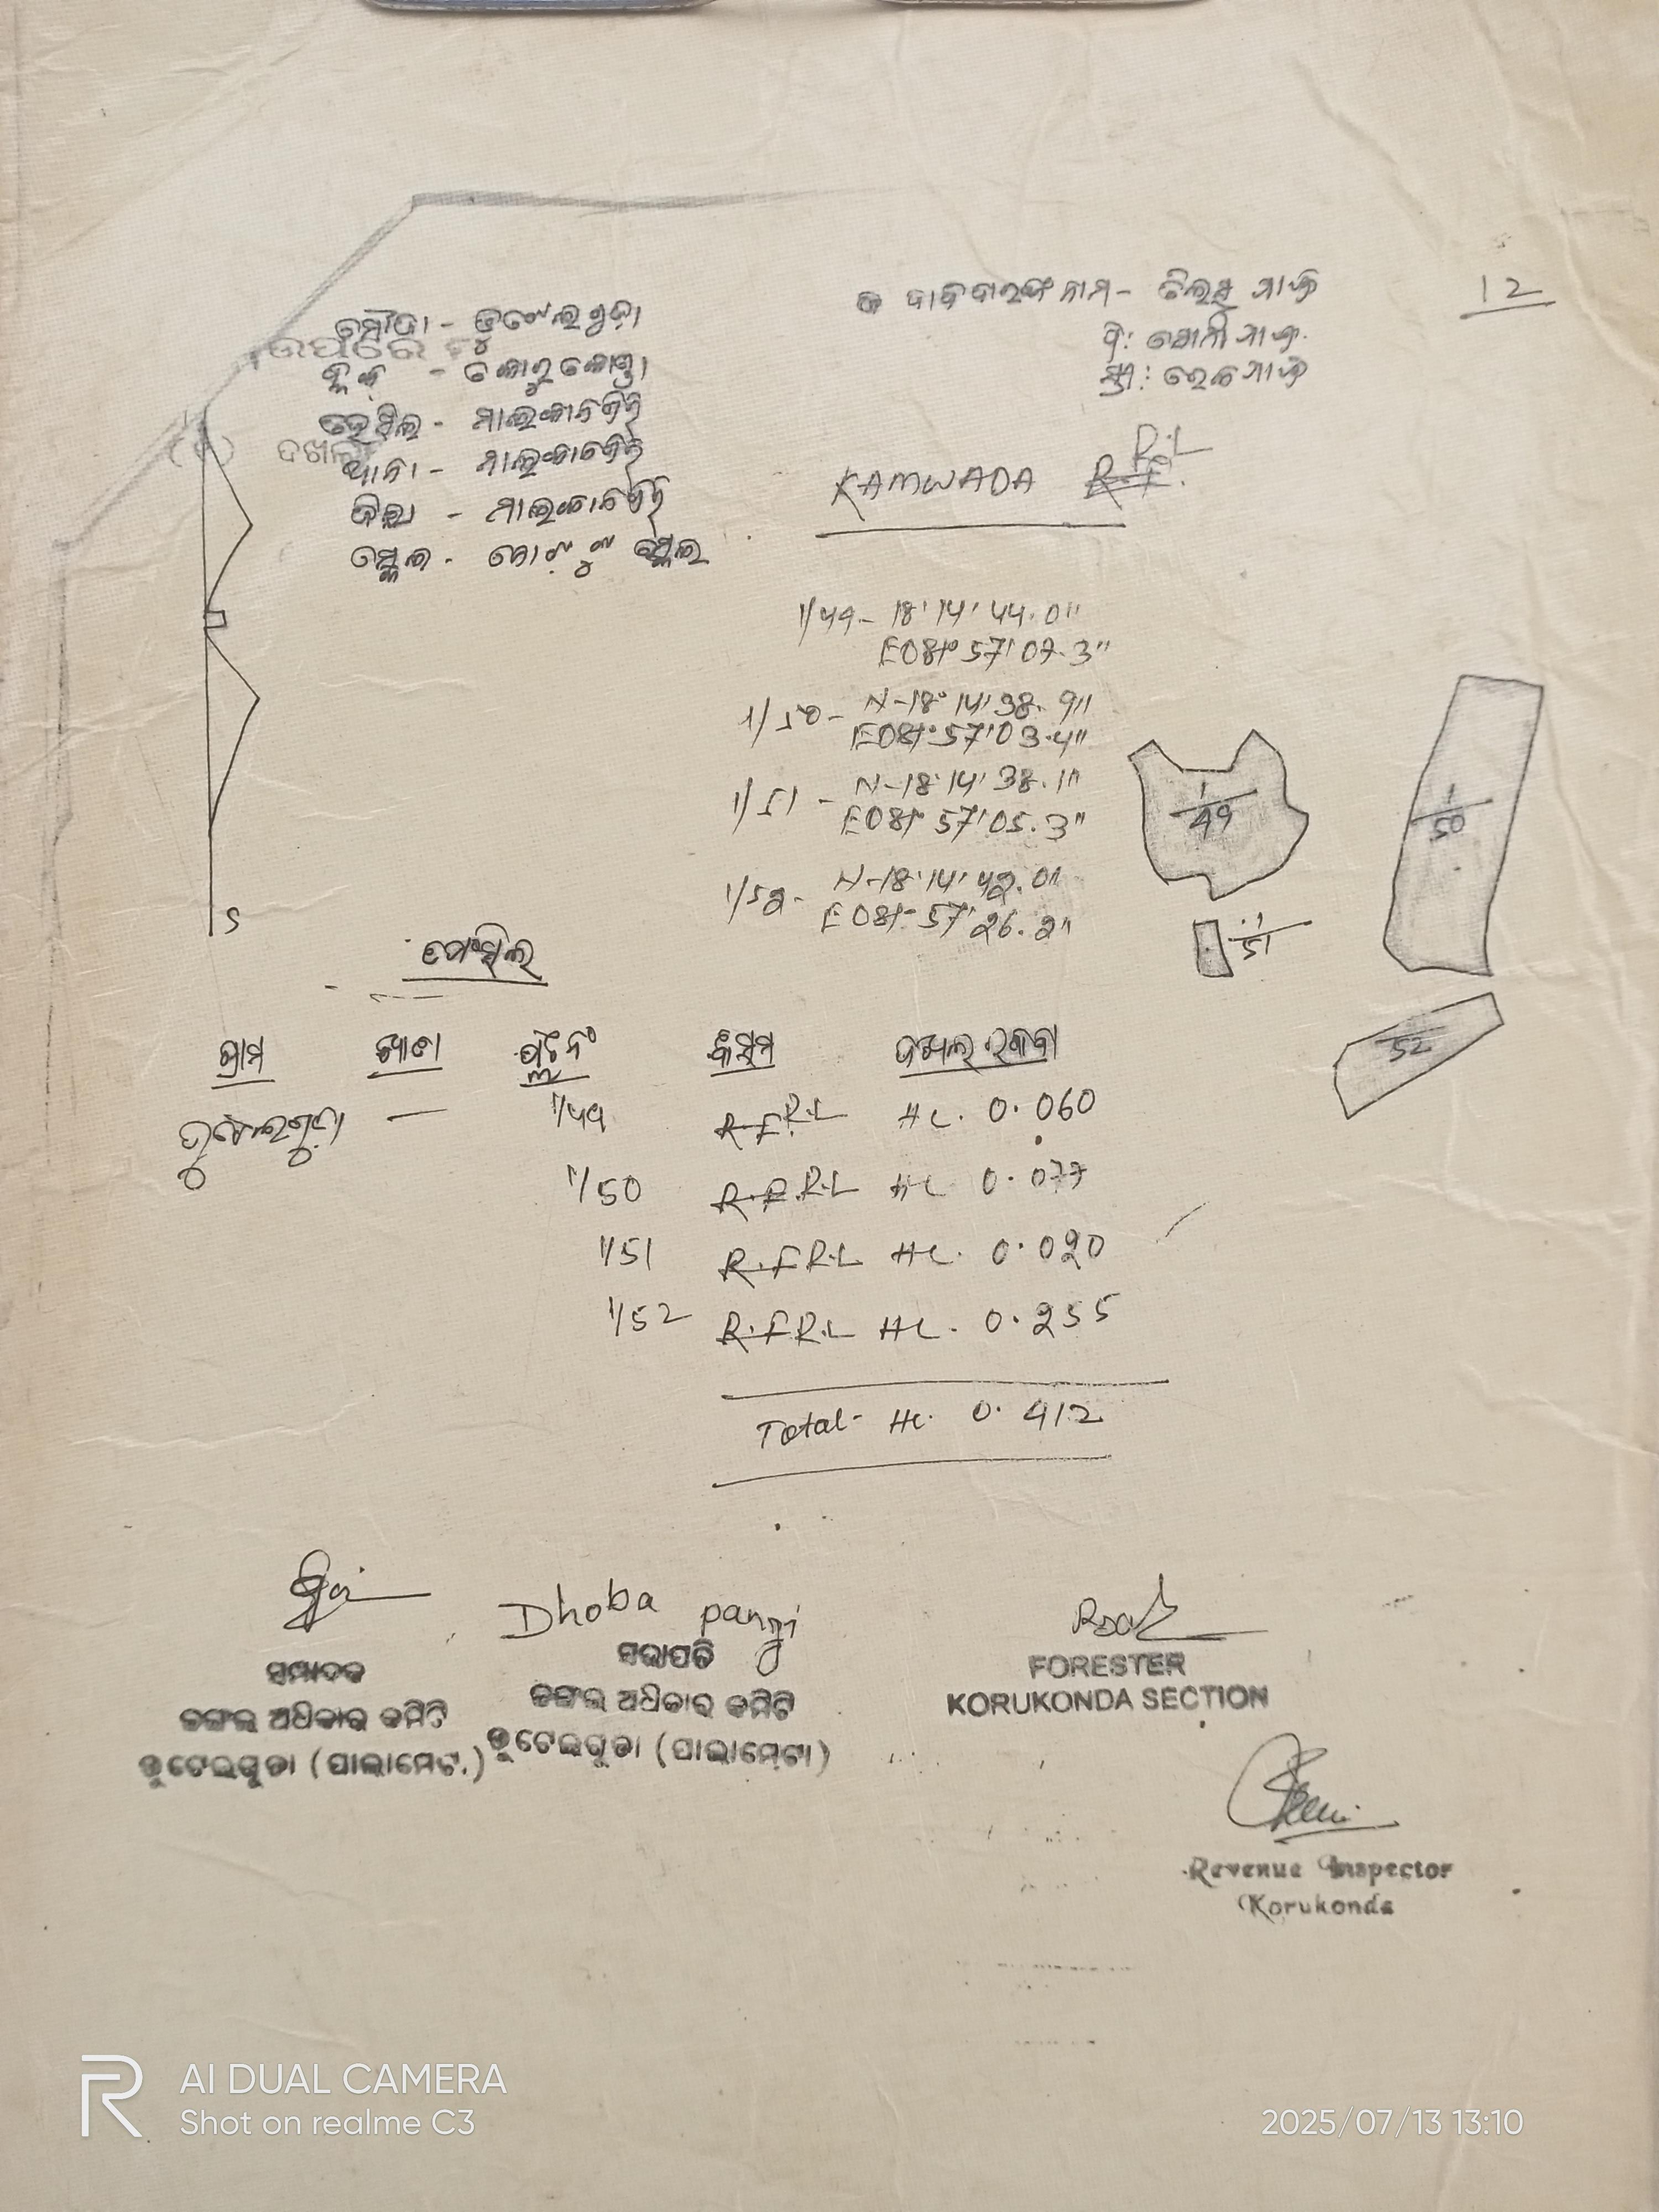 12
ଦାବିଦାରଙ୍କ ନାମ-
ମୌଜା -
ବ୍ଲକ - କୋରୁକୋଣ୍ଡା
ତହସିଲ - ମାଲକାନଗିରି
ଥାନା - ମାଲକାନଗିରି
ଜିଲ୍ଲା - ମାଲକାନଗିରି
ସ୍କେଲ - ନୋଟ୍ ଟୁ ସ୍କେଲ
ଉପରେ
ଦଖଲ
KAMWADA R.F. R.L
1/49- 18° 14' 44.0"
E081° 57' 07.3"
1/50- N-18° 14' 38.9"
E081° 57' 03.4"
1/51 - N-18° 14' 38.1"
E081° 57' 05.3"
1/52- N-18° 14' 42.0"
E081° 57' 26.2"
1/49
1/50
1/51
52
S
ଗ୍ରାମ ଖାତା ପ୍ଲଟ ନଂ କିସମ ଦଖଲ ରକବା
— 1/49 R.F R.L Hc. 0.060
1/50 R.F R.L Hc 0.077
1/51 R.F R.L Hc. 0.020
1/52 R.F R.L Hc. 0.255
Total- Hc. 0.412
Dhoba pangi
ସମ୍ପାଦକ
ଜଙ୍ଗଲ ଅଧିକାର କମିଟି
ଡୁଟେଇଗୁଡା (ପାଲାମେଟ.)
ସଭାପତି
ଜଙ୍ଗଲ ଅଧିକାର କମିଟି
ଡୁଟେଇଗୁଡା (ପାଲାମେଟା)
FORESTER
KORUKONDA SECTION
Revenue Inspector
Korukonda
AI DUAL CAMERA
Shot on realme C3
2025/07/13 13:10